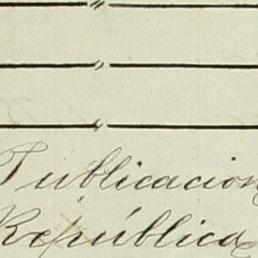 Publicacion
República